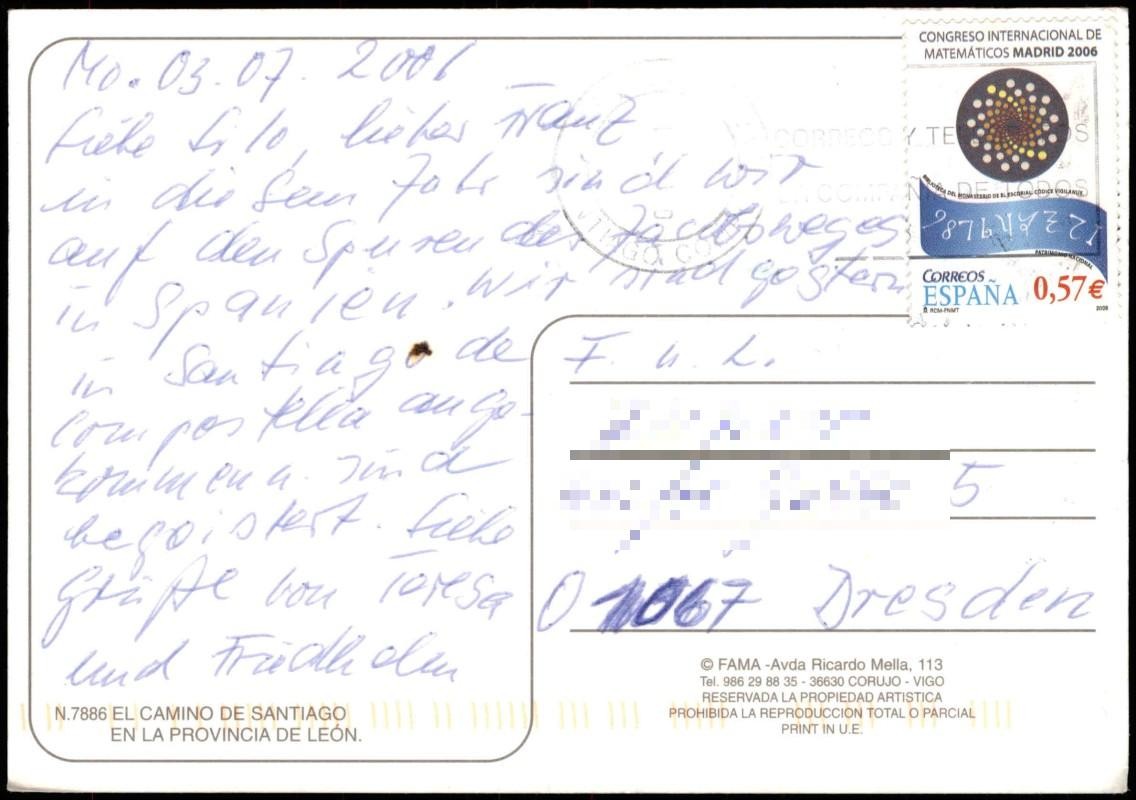 Mo. 03.07. 2006
Liebe Lilo, lieber Franz,
in diesem Jahr sind wir
auf den Spuren des Jacobsweges
in Spanien. Wir sind gestern
in Santiago de
Compostella ange-
kommen u. sind
begeistert. Liebe
Grüße von Teresa
und Friedhelm
N.7886 EL CAMINO DE SANTIAGO
EN LA PROVINCIA DE LEÓN.
CONGRESO INTERNACIONAL DE
MATEMÁTICOS MADRID 2006
CORREO Y TE
OS
EN COMPAÑ
DE TODOS
TIAGO CO
BIBLIOTECA DEL MONASTERIO DE EL ESCORIAL. CÓDICE VIGILANUS
PATRIMONIO NACIONAL
CORREOS
ESPAÑA 0,57€
RCM-FNMT 2006
F. u. L.
5
01067 Dresden
© FAMA -Avda Ricardo Mella, 113
Tel. 986 29 88 35 - 36630 CORUJO - VIGO
RESERVADA LA PROPIEDAD ARTISTICA
PROHIBIDA LA REPRODUCCION TOTAL O PARCIAL
PRINT IN U.E.